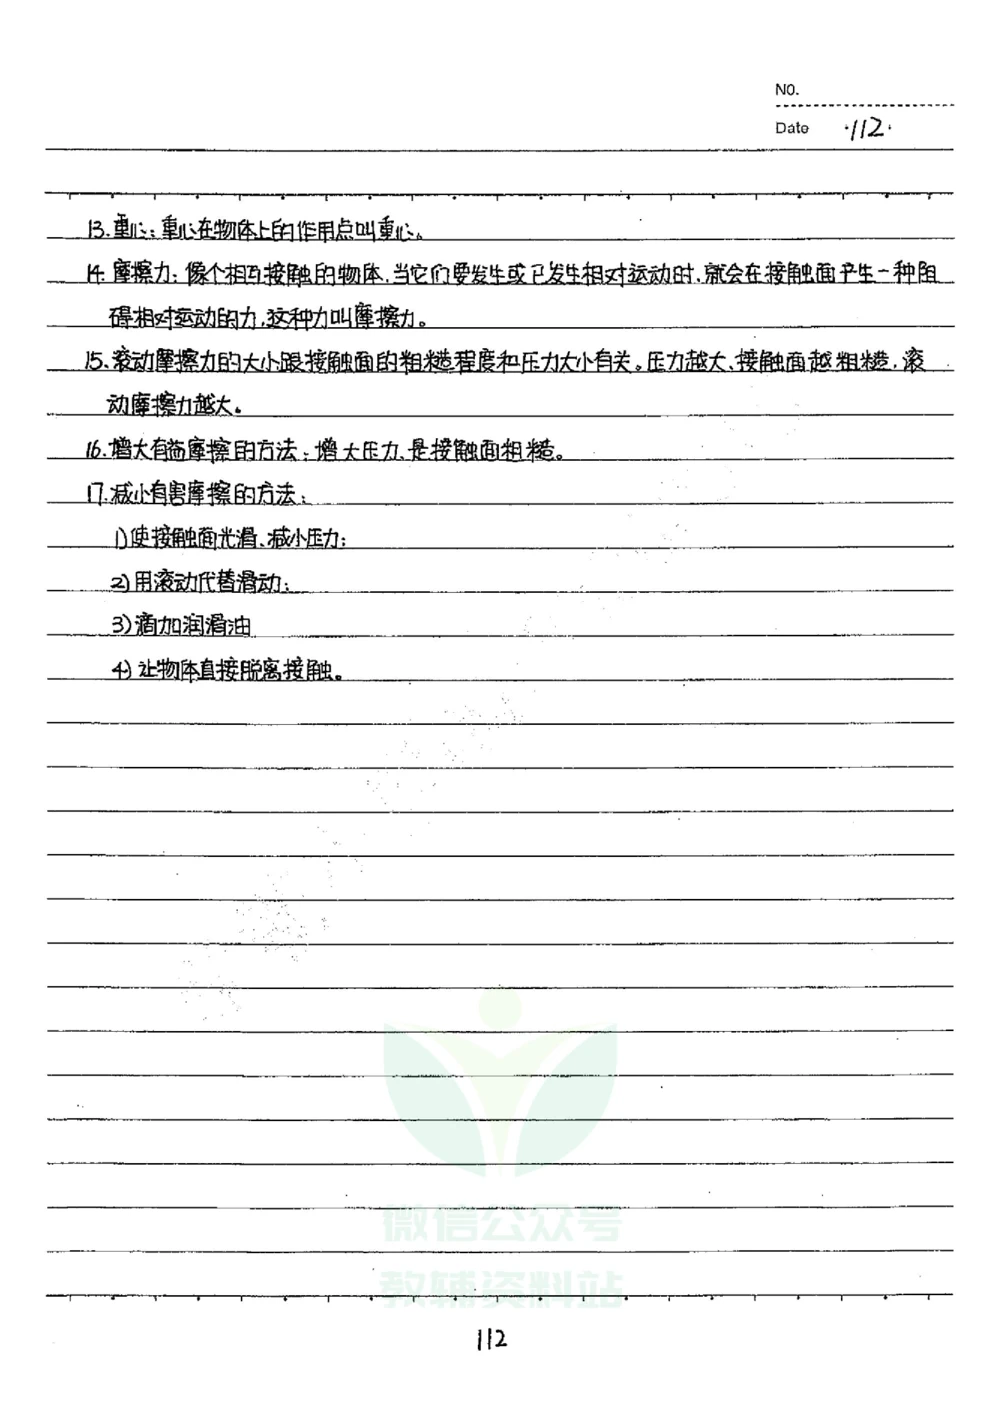 NO.
Date ·112·
13.重心：重心在物体上的作用点叫重心。
14.摩擦力：像个相互接触的物体.当它们要发生或已发生相对运动时.就会在接触面产生一种阻
碍相对运动的力,这种力叫摩擦力。
15、滚动摩擦力的大小跟接触面的粗糙程度和压力大小有关。压力越大、接触面越粗糙，滚
动摩擦力越大。
16.增大有益摩擦的方法：增大压力、是接触面粗糙。
17.减小有害摩擦的方法：
1)使接触面光滑、减小压力；
2)用滚动代替滑动；
3)滴加润滑油
4)让物体直接脱离接触。
微信公众号
教辅资料站
112